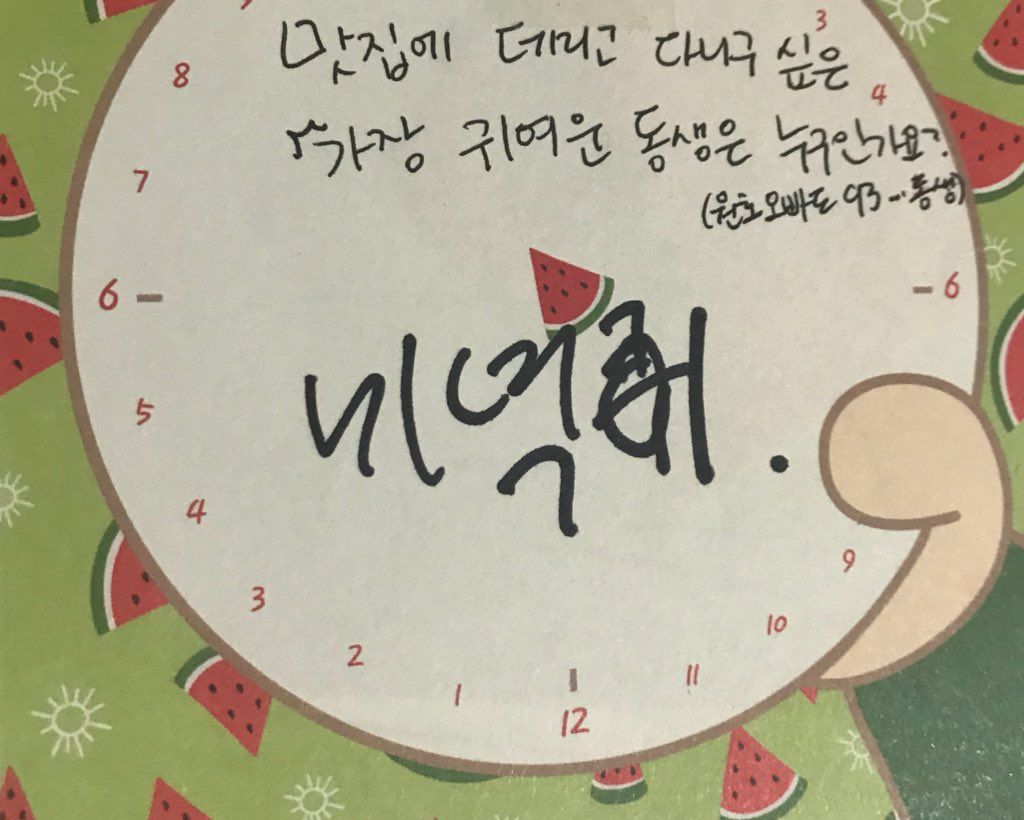 맛집에 데리고 다니구 싶은
가장 귀여운 동생은 누구인가요?
(원호오빠도 93...동생)
3
8
4
7
6
6
5
4
9
3
10
2
11
1
12